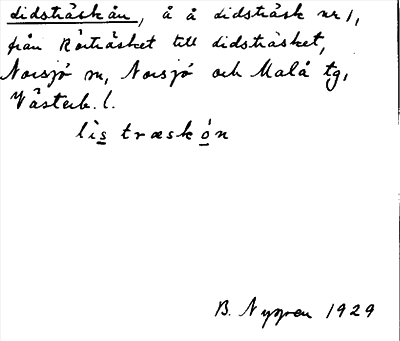 Lidsträskån, å å Lidsträsk nr 1,
från Rörträsket till Lidsträsket,
Norsjö sn, Norsjö och Malå tg,
Västerb. l.
lis træskón
B. Nygren 1929